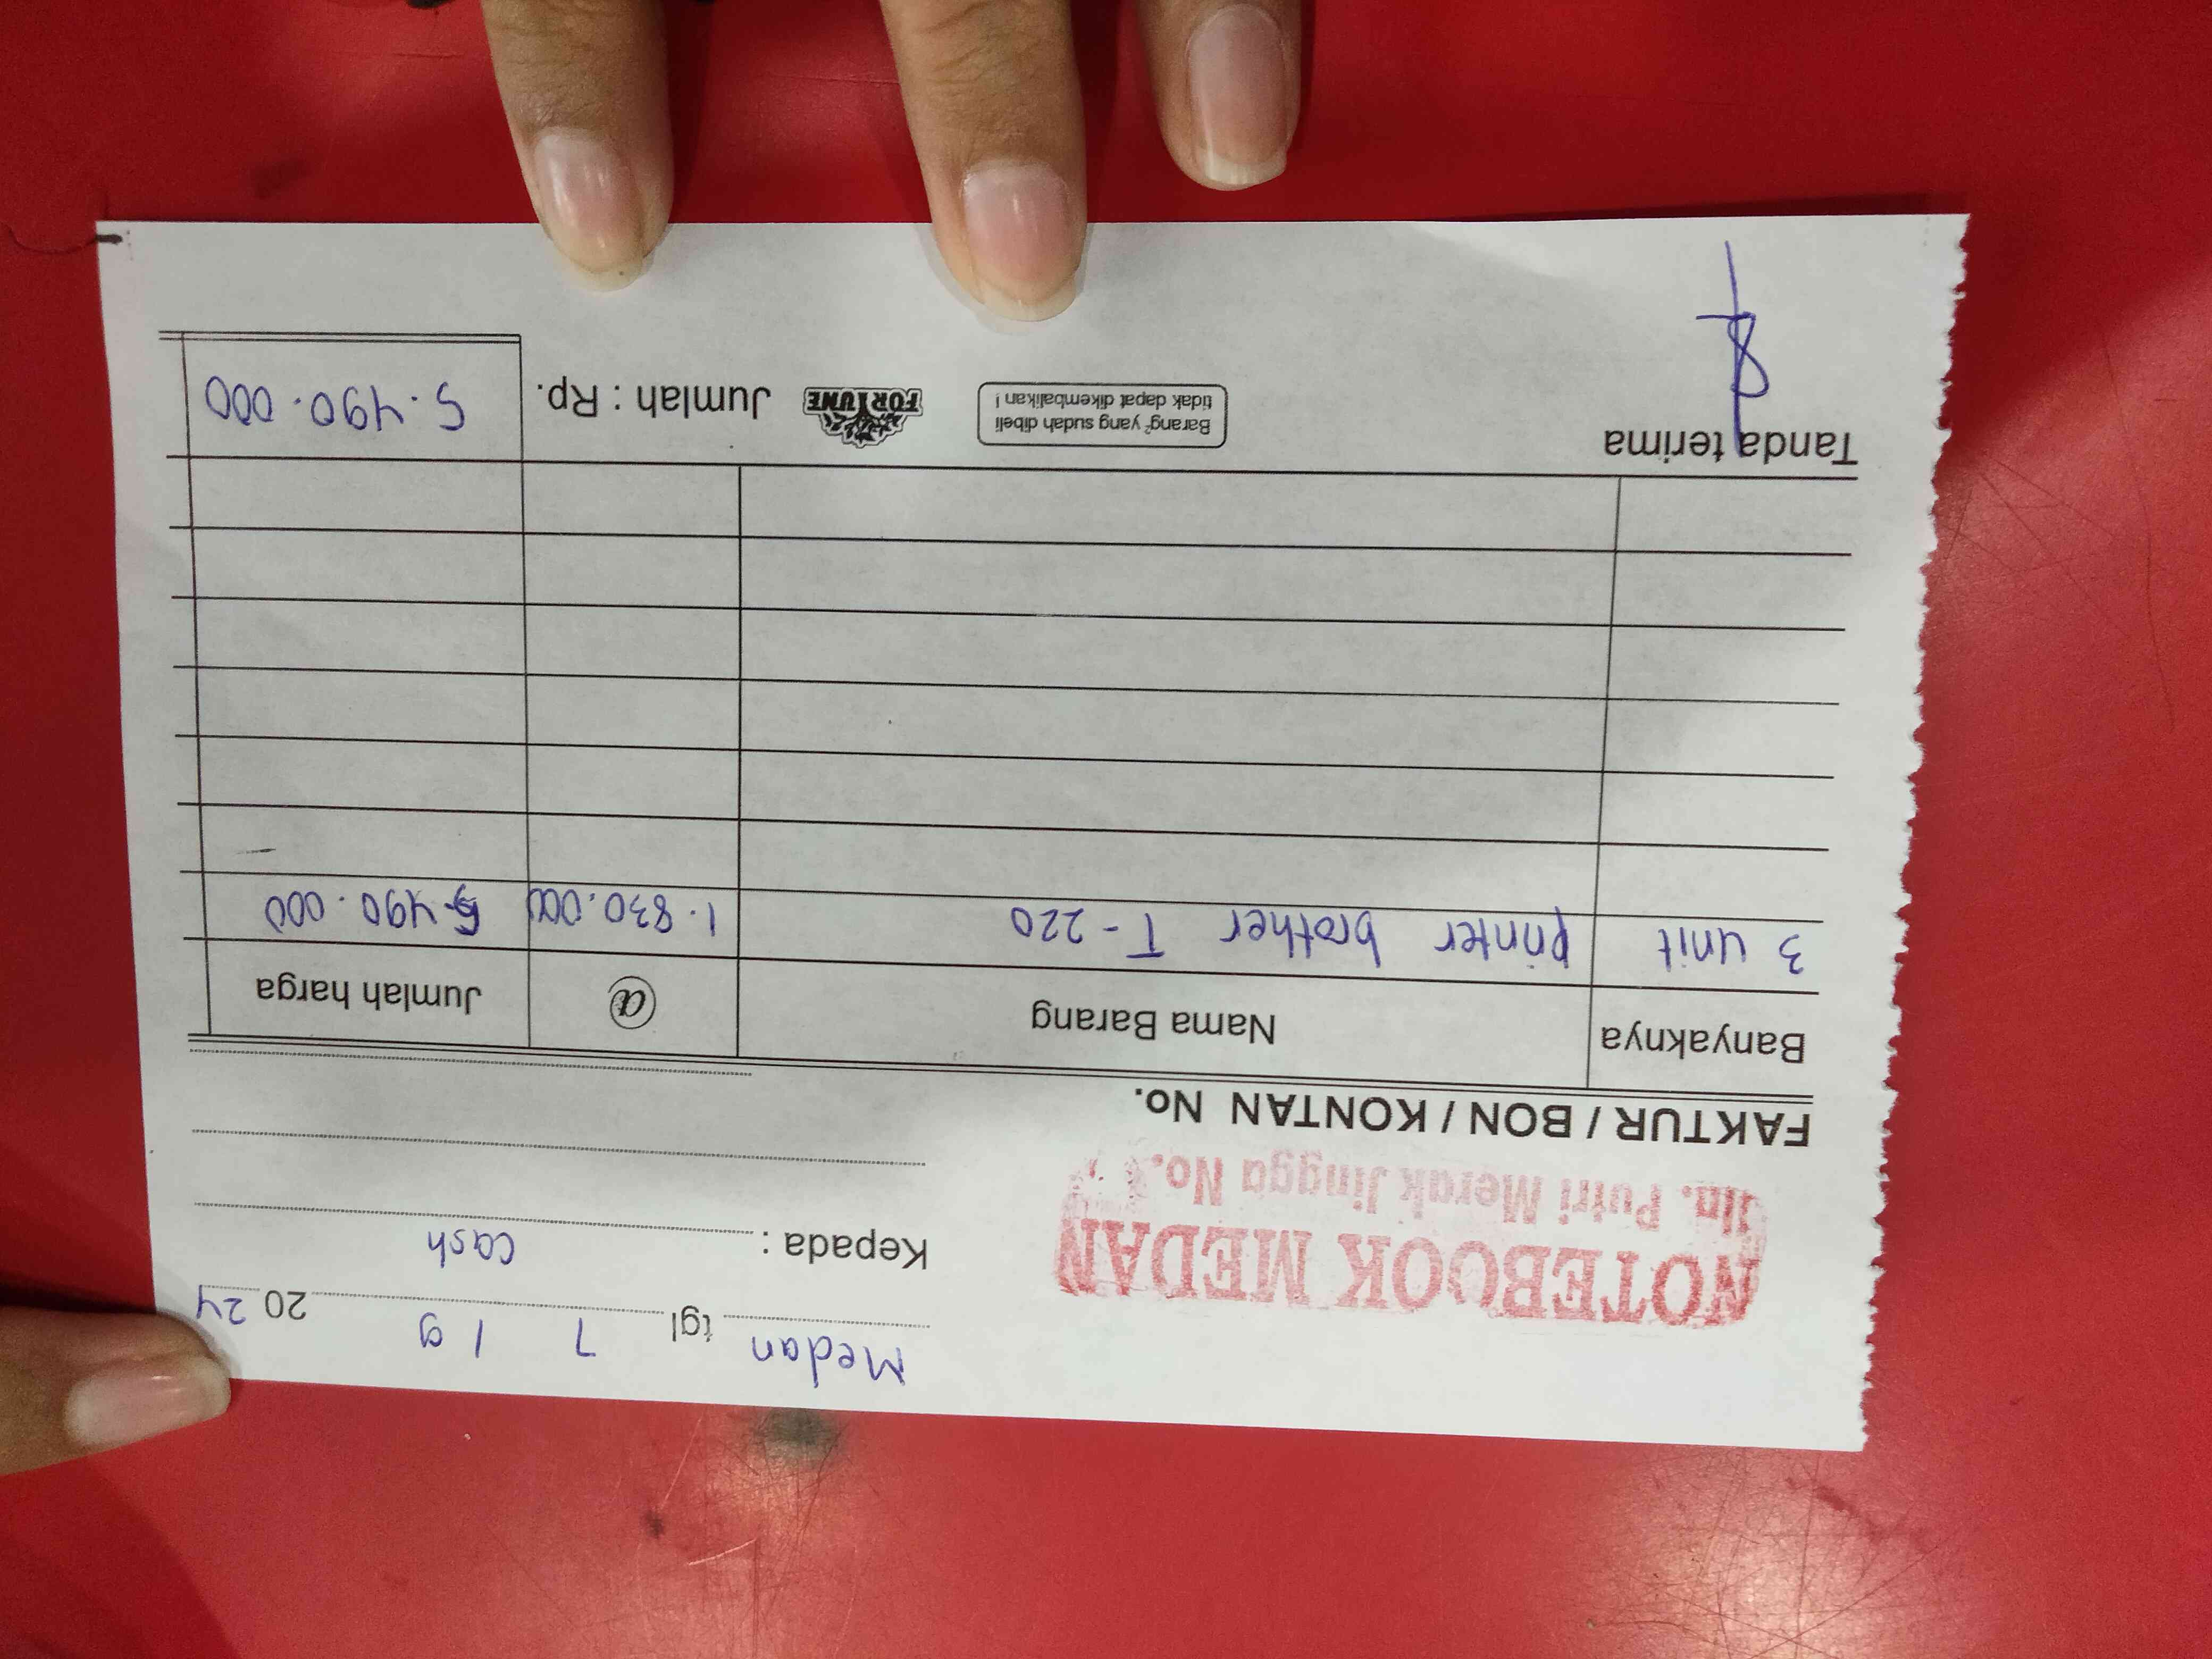 Medan tgl 7 / 9 20 24
NOTEBOOK MEDAN
Jln. Putri Merak Jingga No.
Kepada : cash
FAKTUR / BON / KONTAN No.
Banyaknya Nama Barang @ Jumlah harga
3 unit printer brother T-220 1.830.000 5.490.000
Tanda terima
Barang² yang sudah dibeli
tidak dapat dikembalikan !
FORTUNE
Jumlah : Rp. 5.490.000